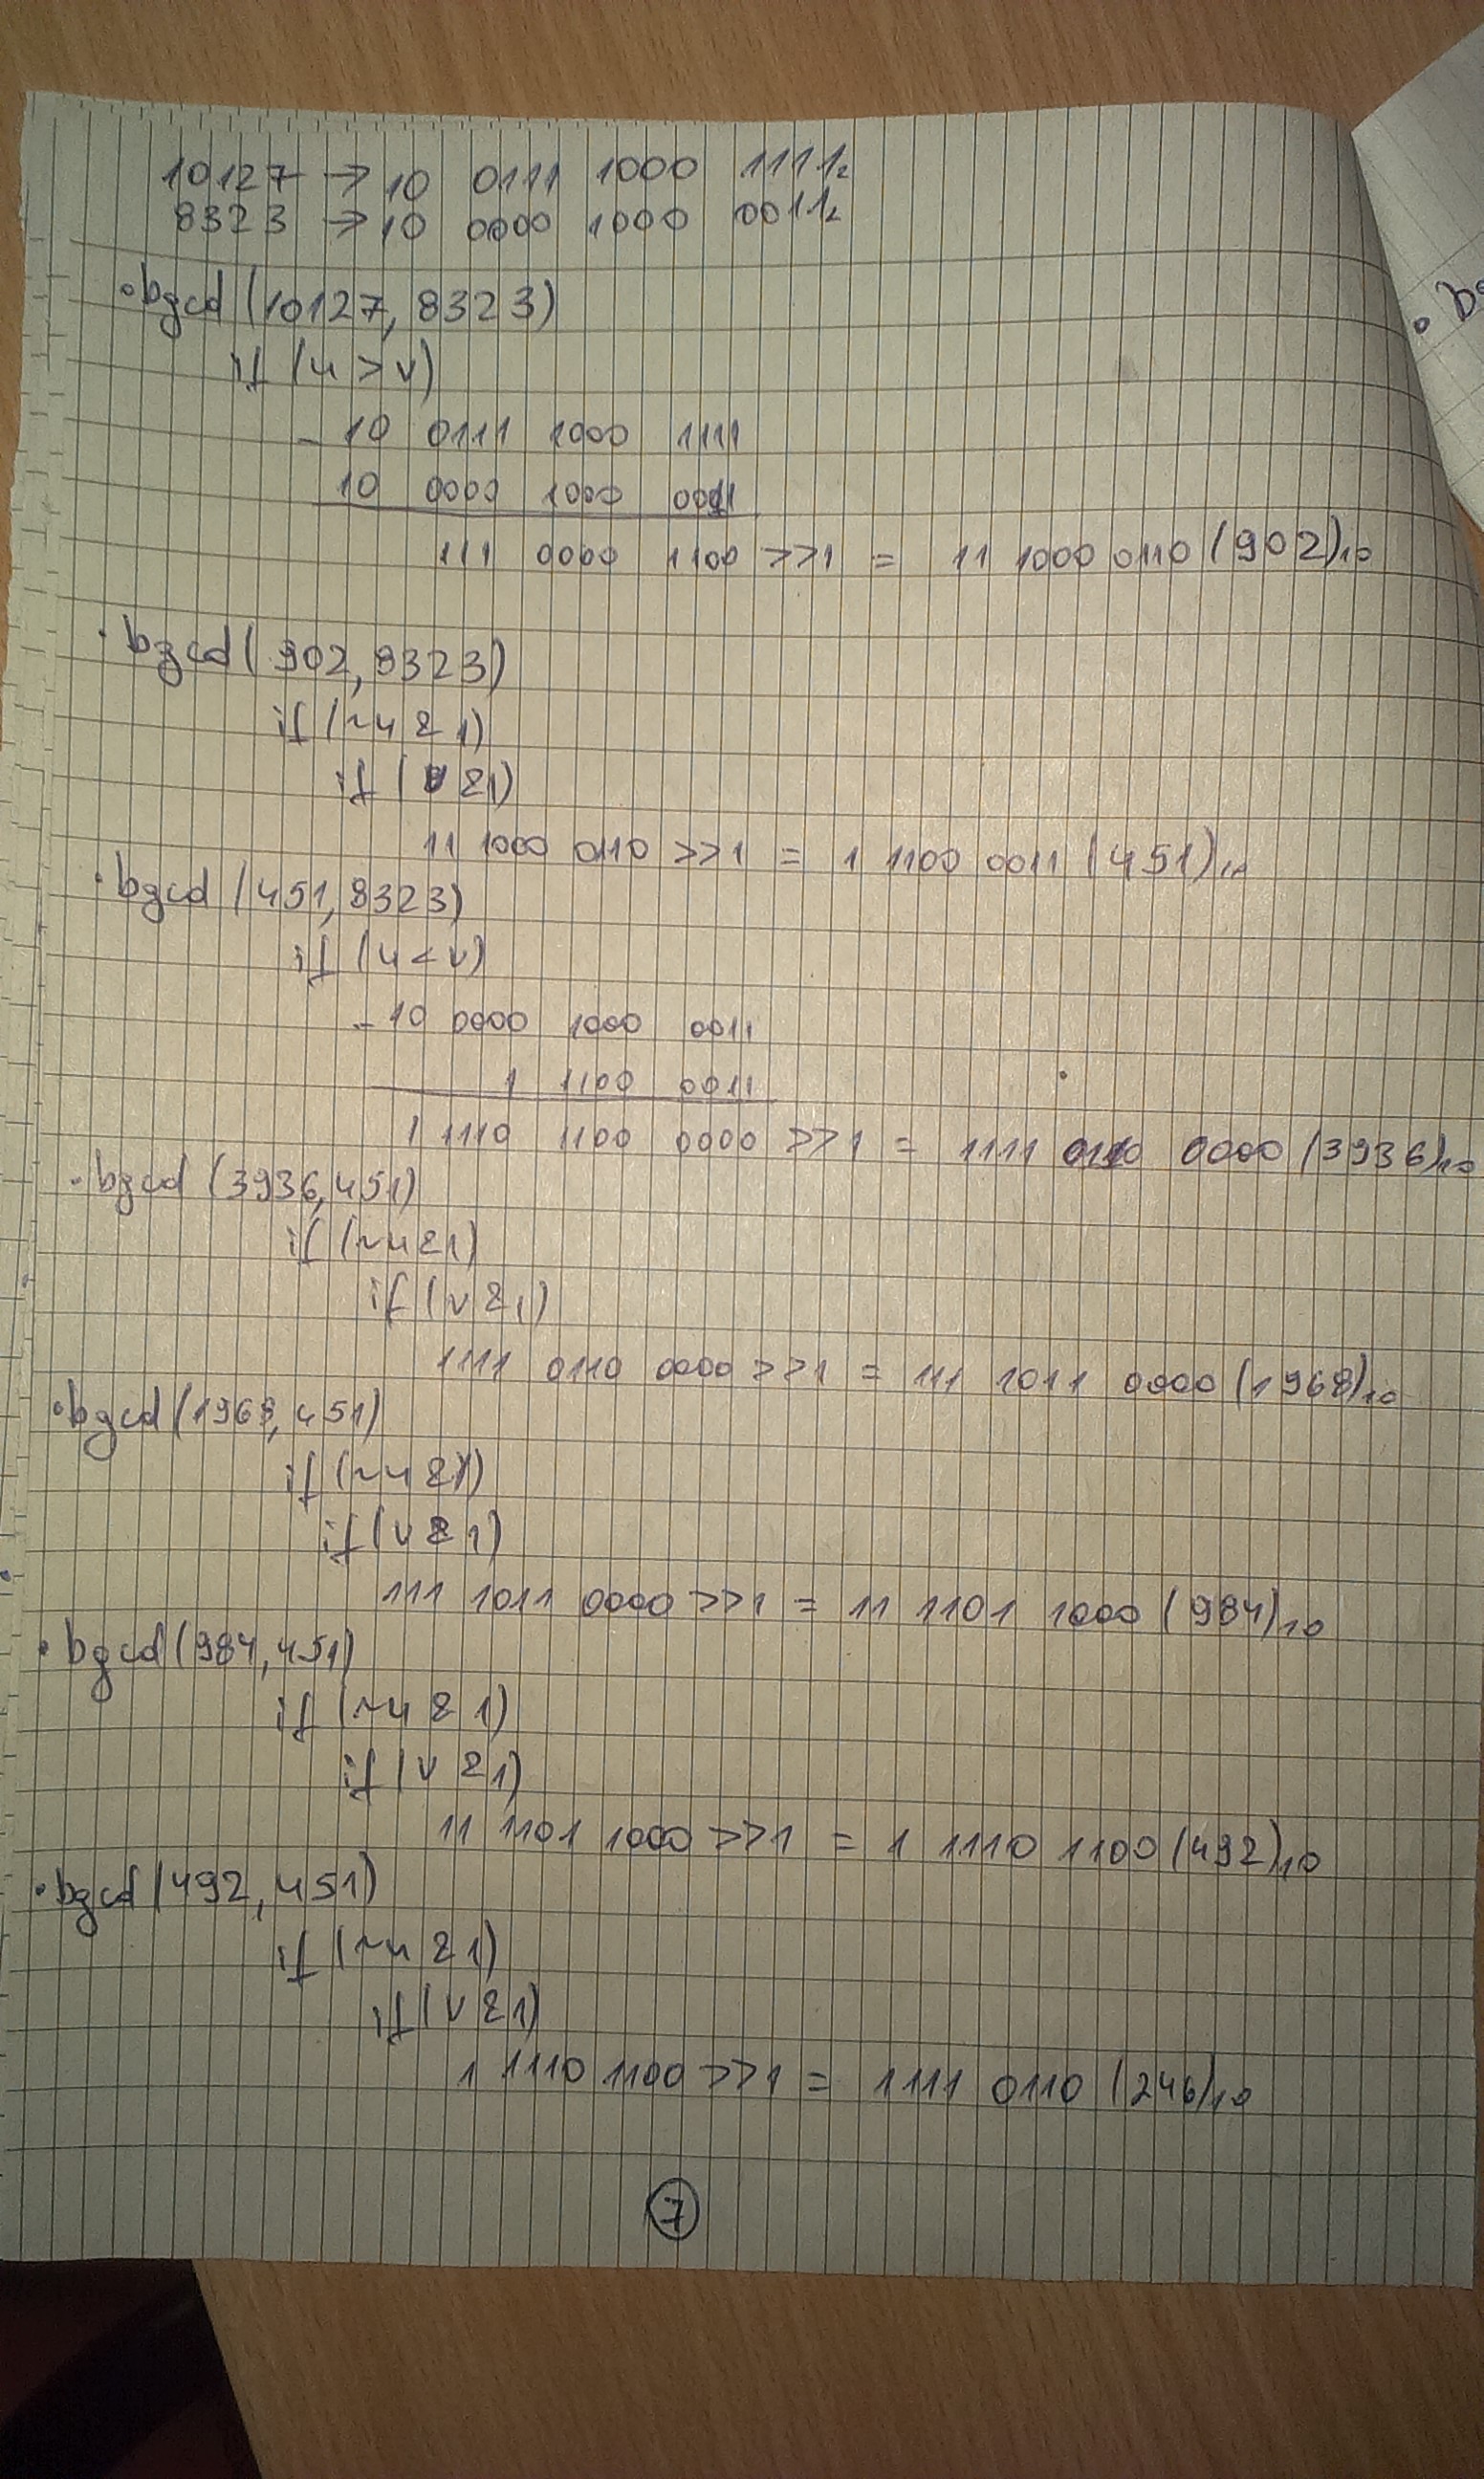 10127 → 10 0111 1000 1111₂
8323 → 10 0000 1000 0011₂
• bgcd (10127, 8323)
if (u > v)
- 10 0111 1000 1111
10 0000 1000 0011
111 0000 1100 >>1 = 11 1000 0110 (902)₁₀
• bgcd (902, 8323)
if (~u & 1)
if (v & 1)
11 1000 0110 >>1 = 1 1100 0011 (451)₁₀
• bgcd (451, 8323)
if (u < v)
- 10 0000 1000 0011
1 1100 0011
1 1110 1100 0000 >>1 = 1111 0110 0000 (3936)₁₀
• bgcd (3936, 451)
if (~u & 1)
if (v & 1)
1111 0110 0000 >>1 = 111 1011 0000 (1968)₁₀
• bgcd (1968, 451)
if (~u & 1)
if (v & 1)
111 1011 0000 >>1 = 11 1101 1000 (984)₁₀
• bgcd (984, 451)
if (~u & 1)
if (v & 1)
11 1101 1000 >>1 = 1 1110 1100 (492)₁₀
• bgcd (492, 451)
if (~u & 1)
if (v & 1)
1 1110 1100 >>1 = 1111 0110 (246)₁₀
7